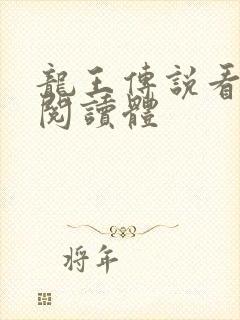 龍王傳說看
閱讀體
將年